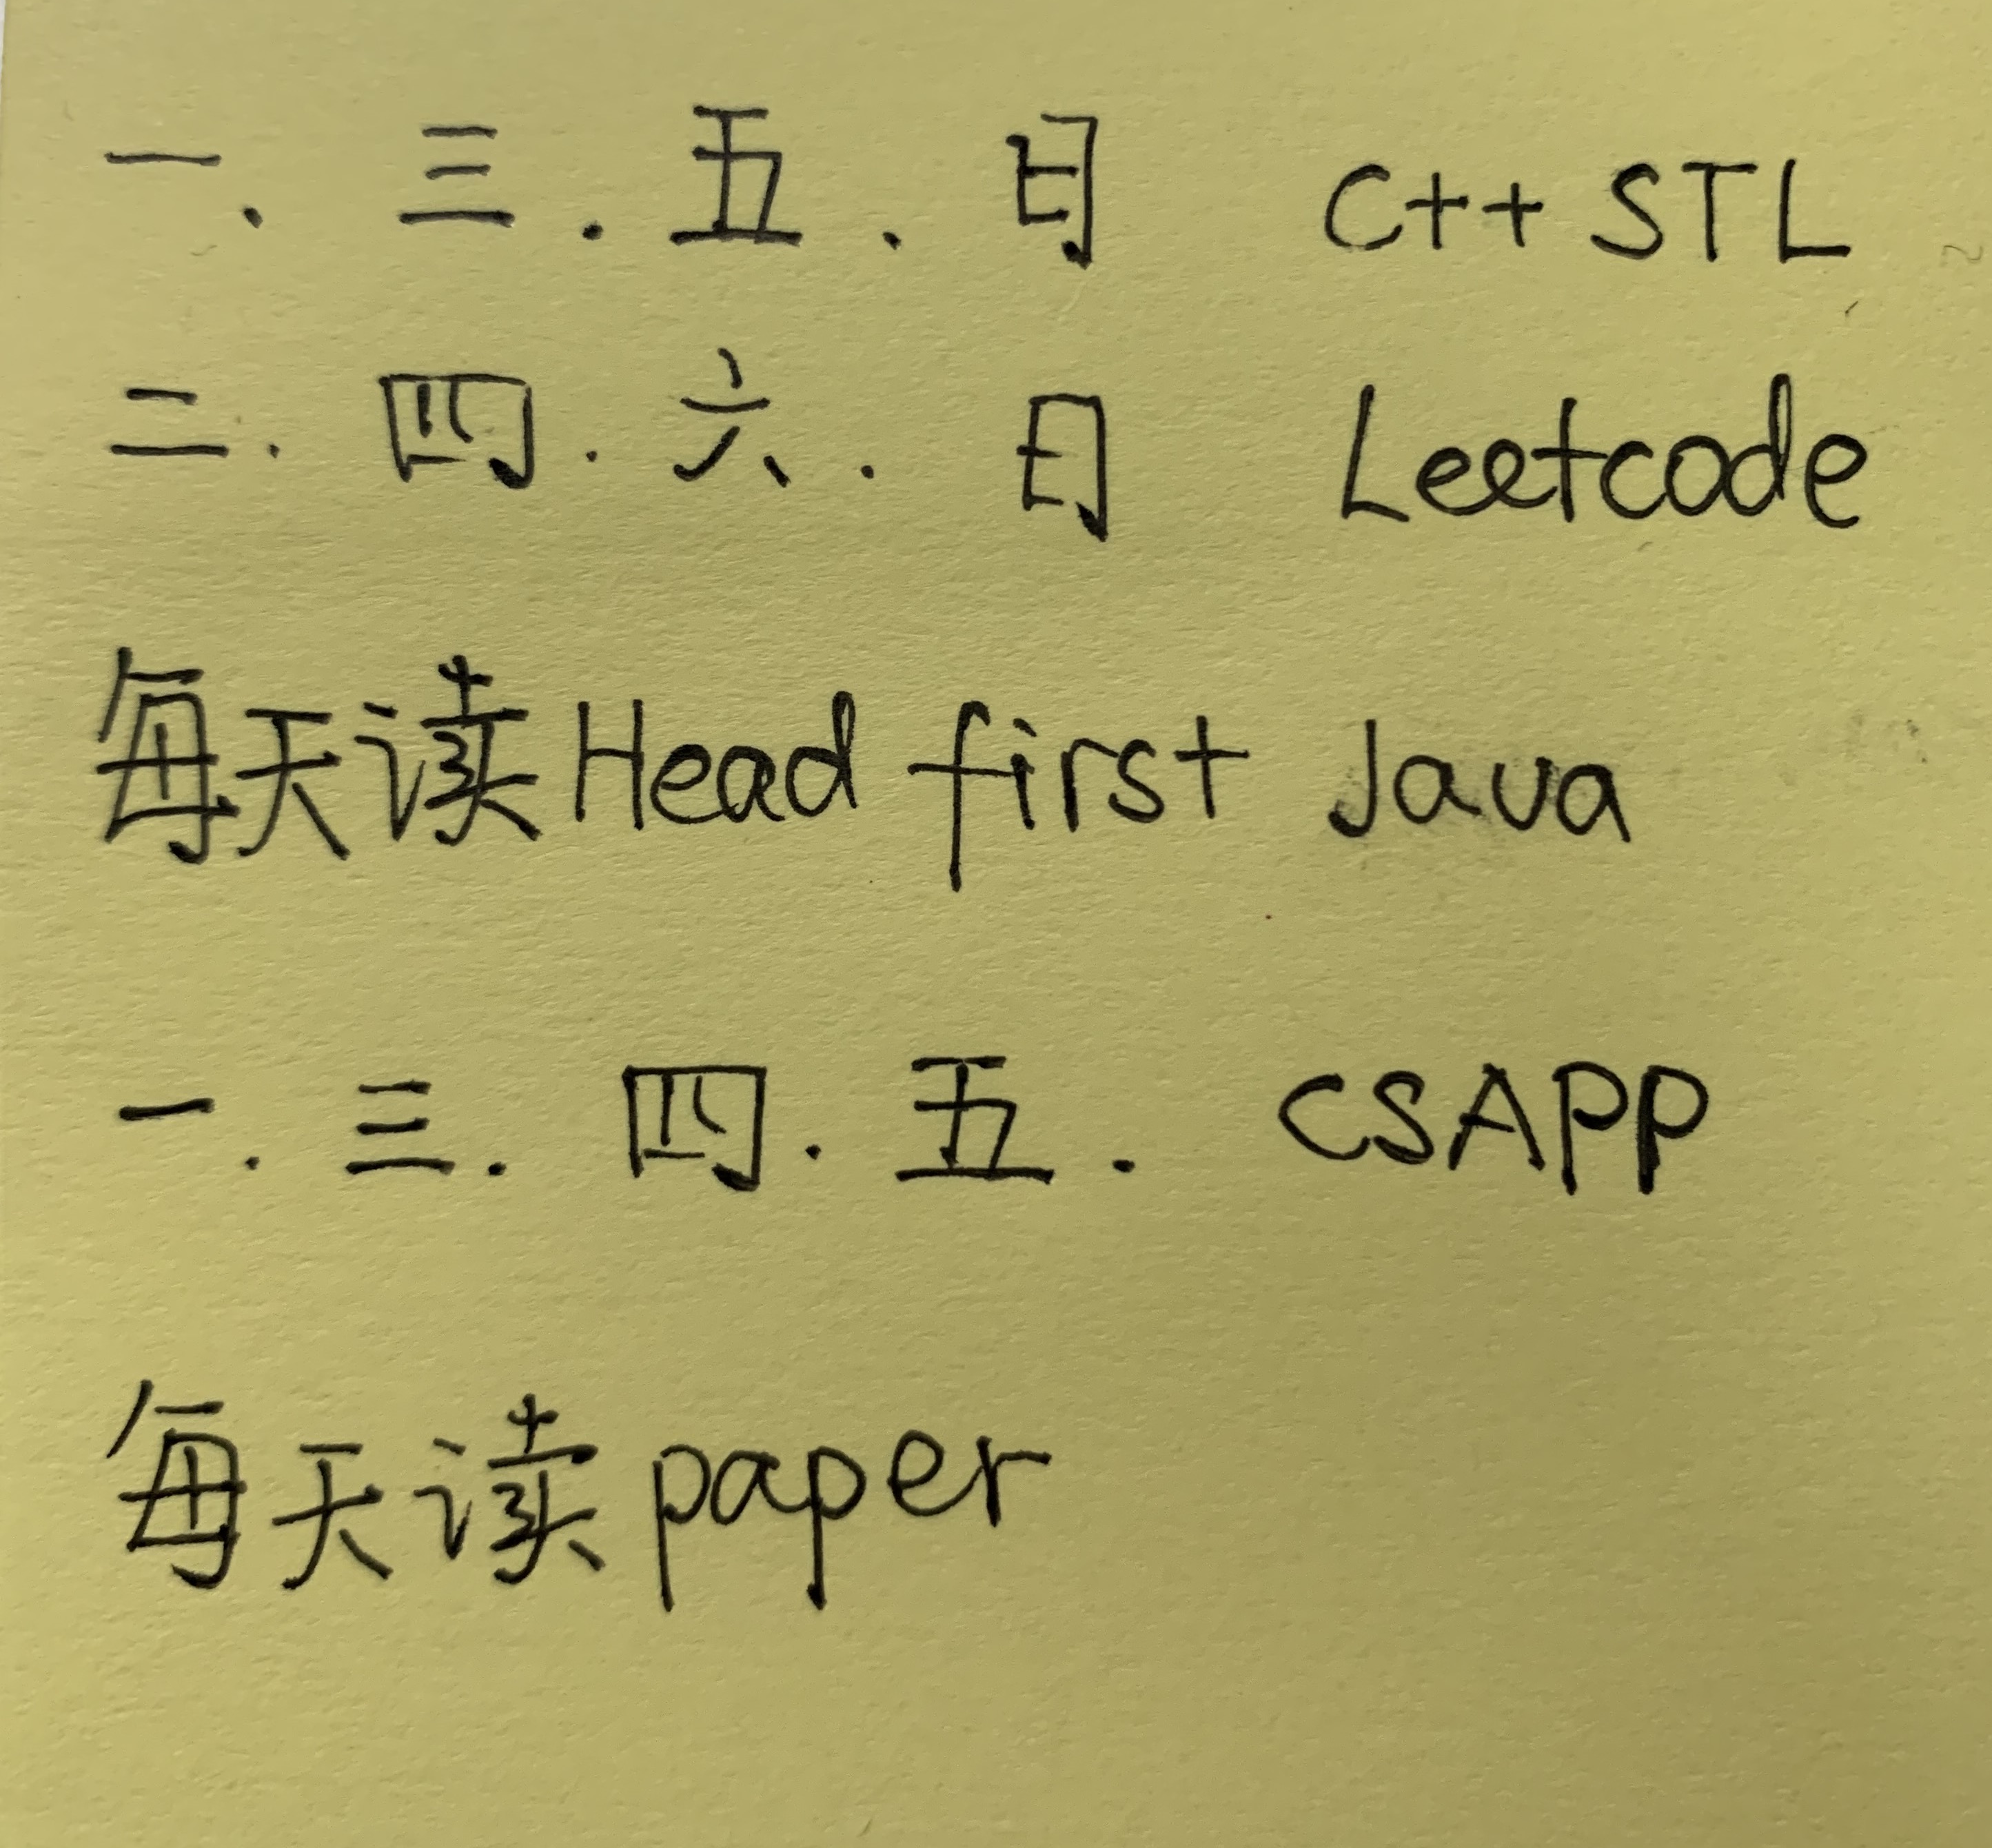 一. 三. 五. 日 C++ STL
二. 四. 六. 日 Leetcode
每天读Head first Java
一. 三. 四. 五. CSAPP
每天读paper